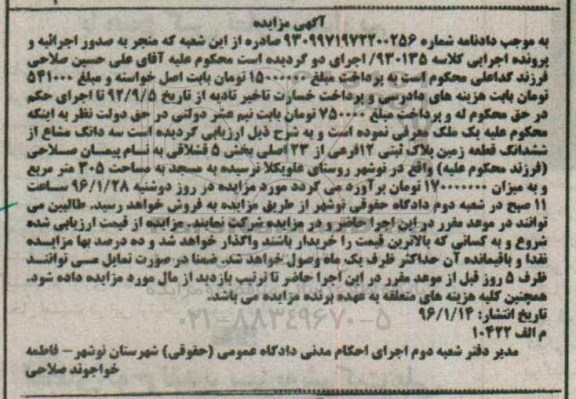 آگهی مزایده
به موجب دادنامه شماره ۹۳۰۹۹۷۱۹۷۲۲۰۰۲۵۶ صادره از این شعبه که منجر به صدور اجرائیه و
پرونده اجرایی کلاسه ۹۳۰۱۳۵/ اجرای دو گردیده است محکوم علیه آقای علی حسین صلاحی
فرزند گداعلی محکوم است به پرداخت مبلغ ۱۵۰۰۰۰۰۰ تومان بابت اصل خواسته و مبلغ ۵۴۱۰۰۰
تومان بابت هزینه های دادرسی و پرداخت خسارت تاخیر تادیه از تاریخ ۹۲/۹/۵ تا اجرای حکم
در حق محکوم له و پرداخت مبلغ ۷۵۰۰۰۰ تومان بابت نیم عشر دولتی در حق دولت نظر به اینکه
محکوم علیه یک ملک معرفی نموده است و به شرح ذیل ارزیابی گردیده است سه دانگ مشاع از
ششدانگ قطعه زمین پلاک ثبتی ۱۲فرعی از ۲۳ اصلی بخش ۵ قشلاقی به نام پیمان صلاحی
(فرزند محکوم علیه) واقع در نوشهر روستای علویکلا نرسیده به مسجد به مساحت ۳۰۵ متر مربع
و به میزان ۱۷۰۰۰۰۰۰ تومان برآورد می گردد مورد مزایده در روز دوشنبه ۹۶/۱/۲۸ ساعت
۱۱ صبح در شعبه دوم دادگاه حقوقی نوشهر از طریق مزایده به فروش خواهد رسید. طالبین می
توانند در موعد مقرر در این اجرا حاضر و در مزایده شرکت نمایند. مزایده از قیمت ارزیابی شده
شروع و به کسانی که بالاترین قیمت را خریدار باشند واگذار خواهد شد و ده درصد بها مزایده
نقدا و باقیمانده آن حداکثر ظرف یک ماه وصول خواهد شد. ضمنا در صورت تمایل می توانند
ظرف ۵ روز قبل از موعد مقرر در این اجرا حاضر تا ترتیب بازدید از مال مورد مزایده داده شود.
همچنین کلیه هزینه های متعلقه به عهده برنده مزایده می باشد.
تاریخ انتشار: ۹۶/۱/۱۴
۰۲۱-۸۸۳۴۹۶۷۰-۵
م الف ۱۰۴۲۲
مدیر دفتر شعبه دوم اجرای احکام مدنی دادگاه عمومی (حقوقی) شهرستان نوشهر – فاطمه
خواجوند صلاحی